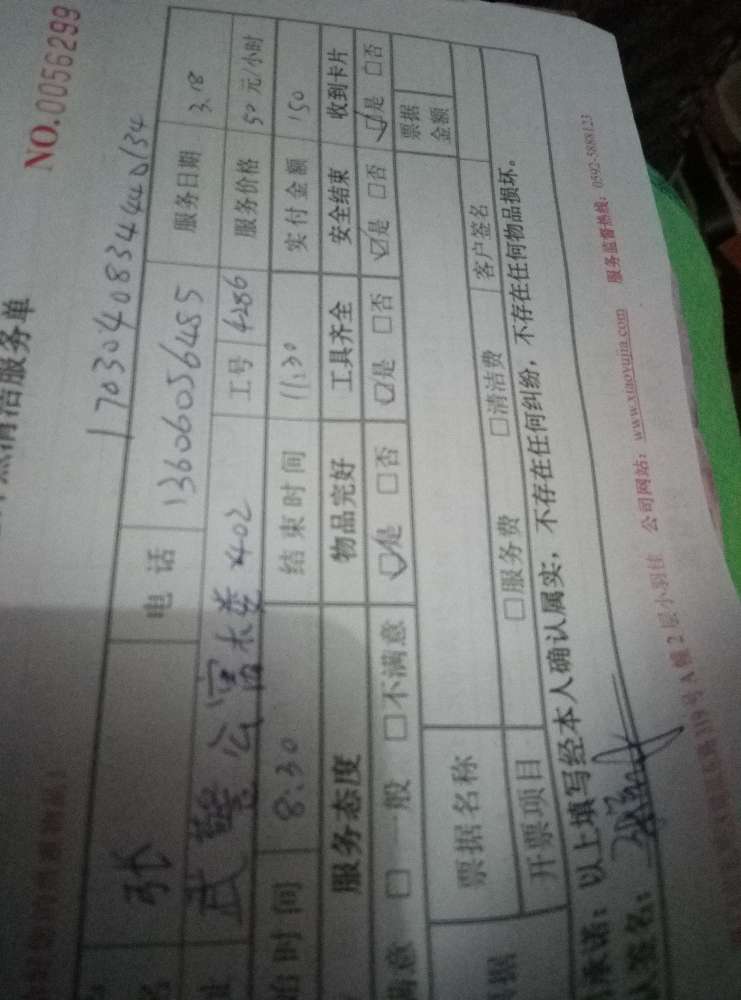 清洁服务单
NO.0056299
17030408344440134
名 张 电话 13606056485 服务日期 3.18
址 武警公寓水娄402 工号 4286 服务价格 50元/小时
始时间 8:30 结束时间 11:30 实付金额 150
服务态度 物品完好 工具齐全 安全结束 收到卡片
满意 □一般 □不满意 ☑是 □否 ☑是 □否 ☑是 □否 ☑是 □否
据 票据名称 票据金额
开票项目 □服务费 □清洁费 客户签名
承诺：以上填写经本人确认属实，不存在任何纠纷，不存在任何物品损坏。
人签名：
119号A幢2层小羽佳 公司网站：www.xiaoyujia.com 服务监督热线：0592-5888123